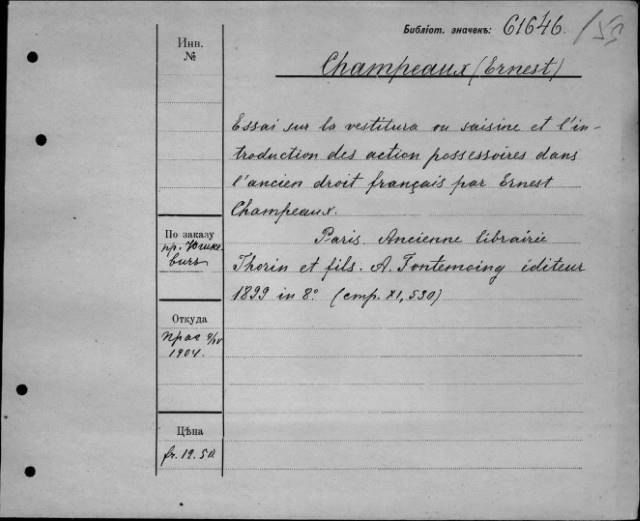 Библіот. значекъ: 61646.
Инв.
№
Champeaux (Ernest)
Essai sur la vestitura ou saisine et l'in-
troduction des action possessoires dans
l'ancien droit français par Ernest
Champeaux.
Paris. Ancienne librairie
Thorin et fils. A. Fontemoing éditeur
1899 in 8º. (стр. XI, 530)
По заказу
пр. Юшке-
вичъ
Откуда
1904.
Цѣна
fr. 12.50